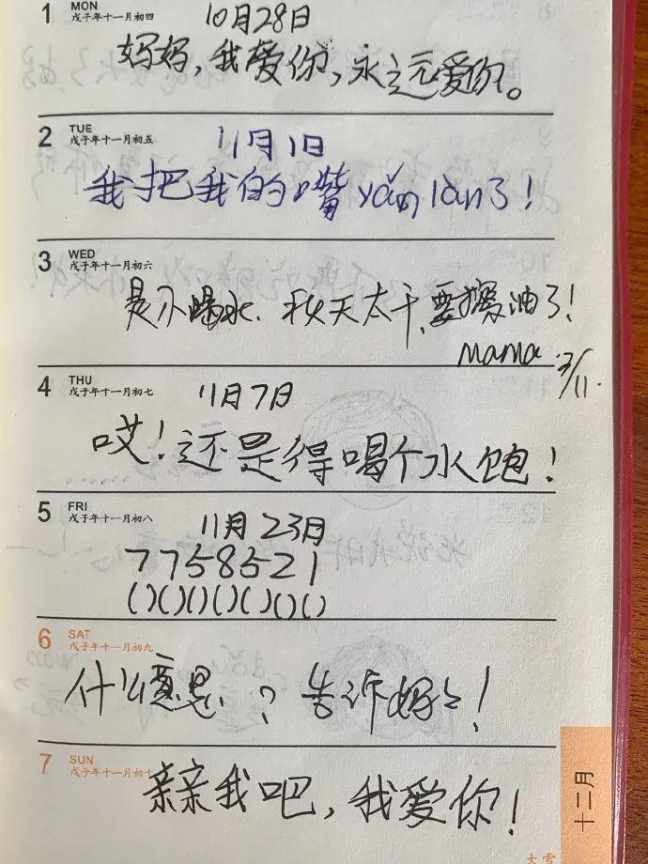 1 MON
戊子年十一月初四
10月28日
妈妈,我爱你,永远爱你。
2 TUE
戊子年十一月初五
11月1日
我把我的嘴yǎn làn了!
3 WED
戊子年十一月初六
是不喝水.秋天太干,要擦油了!
mama 3/11.
4 THU
戊子年十一月初七
11月7日
哎!还是得喝个水饱!
5 FRI
戊子年十一月初八
11月23日
7758521
()()()()()()()
6 SAT
戊子年十一月初九
什么意思?告诉妈妈!
7 SUN
戊子年十一月初十
亲亲我吧,我爱你!
十二月
大雪